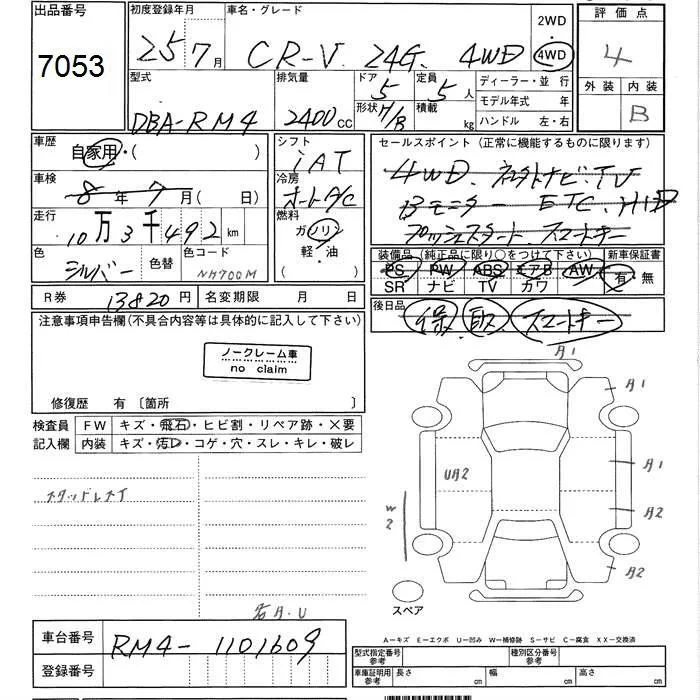 出品番号 初度登録年月 車名・グレード 2WD 評価点
7053 25 7月 CR-V 24G 4WD 4WD 4
型式 排気量 ドア 5 定員 5人 ディーラー・並行 外装 内装
DBA-RM4 2400cc 形状 H/B 積載 kg モデル年式 年 B
ハンドル 左・右
車歴 自家用・( ) シフト iAT セールスポイント (正常に機能するものに限ります)
車検 8年 7月( 日) 冷房 オートA/C 4WD
走行 10万3千492km 燃料 ガソリン ETC、HID
色 シルバー 色替 色コード NH700M 軽・油 プッシュスタート、スマートキー
装備品 (純正品に限り○をつけて下さい) 新車保証書
PS PW ABS エアB AW 有・無
SR ナビ TV カワ
R券 13820円 名変期限 月 日 後日品 保 取 スマートキー
注意事項申告欄(不具合内容等は具体的に記入して下さい)
ノークレーム車
no claim
修復歴 有 〔箇所 〕
検査員 FW キズ・飛石・ヒビ割・リペア跡・×要
記入欄 内装 キズ・汚レ・コゲ・穴・スレ・キレ・破レ
A1
A1
A1
UA2
A2
W2
A2
スタッドレスタイ
スペア
右A.U
車台番号 RM4-1101609
登録番号
A-キズ E-エクボ U-凹み W-補修跡 S-サビ C-腐食 XX-交換済
型式指定番号 参考 種別区分番号 参考
車庫証明用 参考 長さ cm 幅 cm 高さ cm